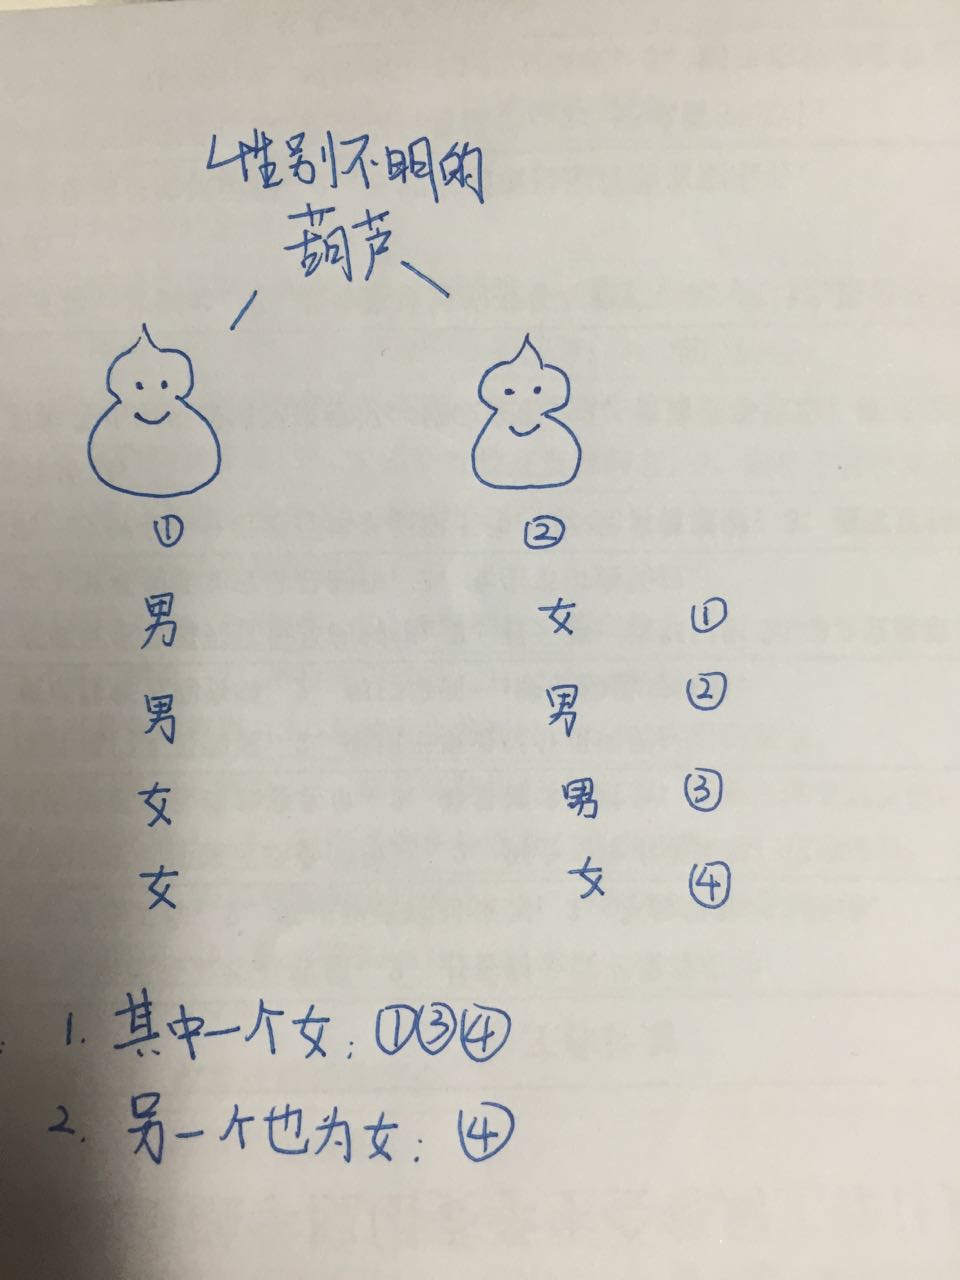 性别不明的
葫芦
① ②
男 女 ①
男 男 ②
女 男 ③
女 女 ④
1. 其中一个女: ①③④
2. 另一个也为女: ④